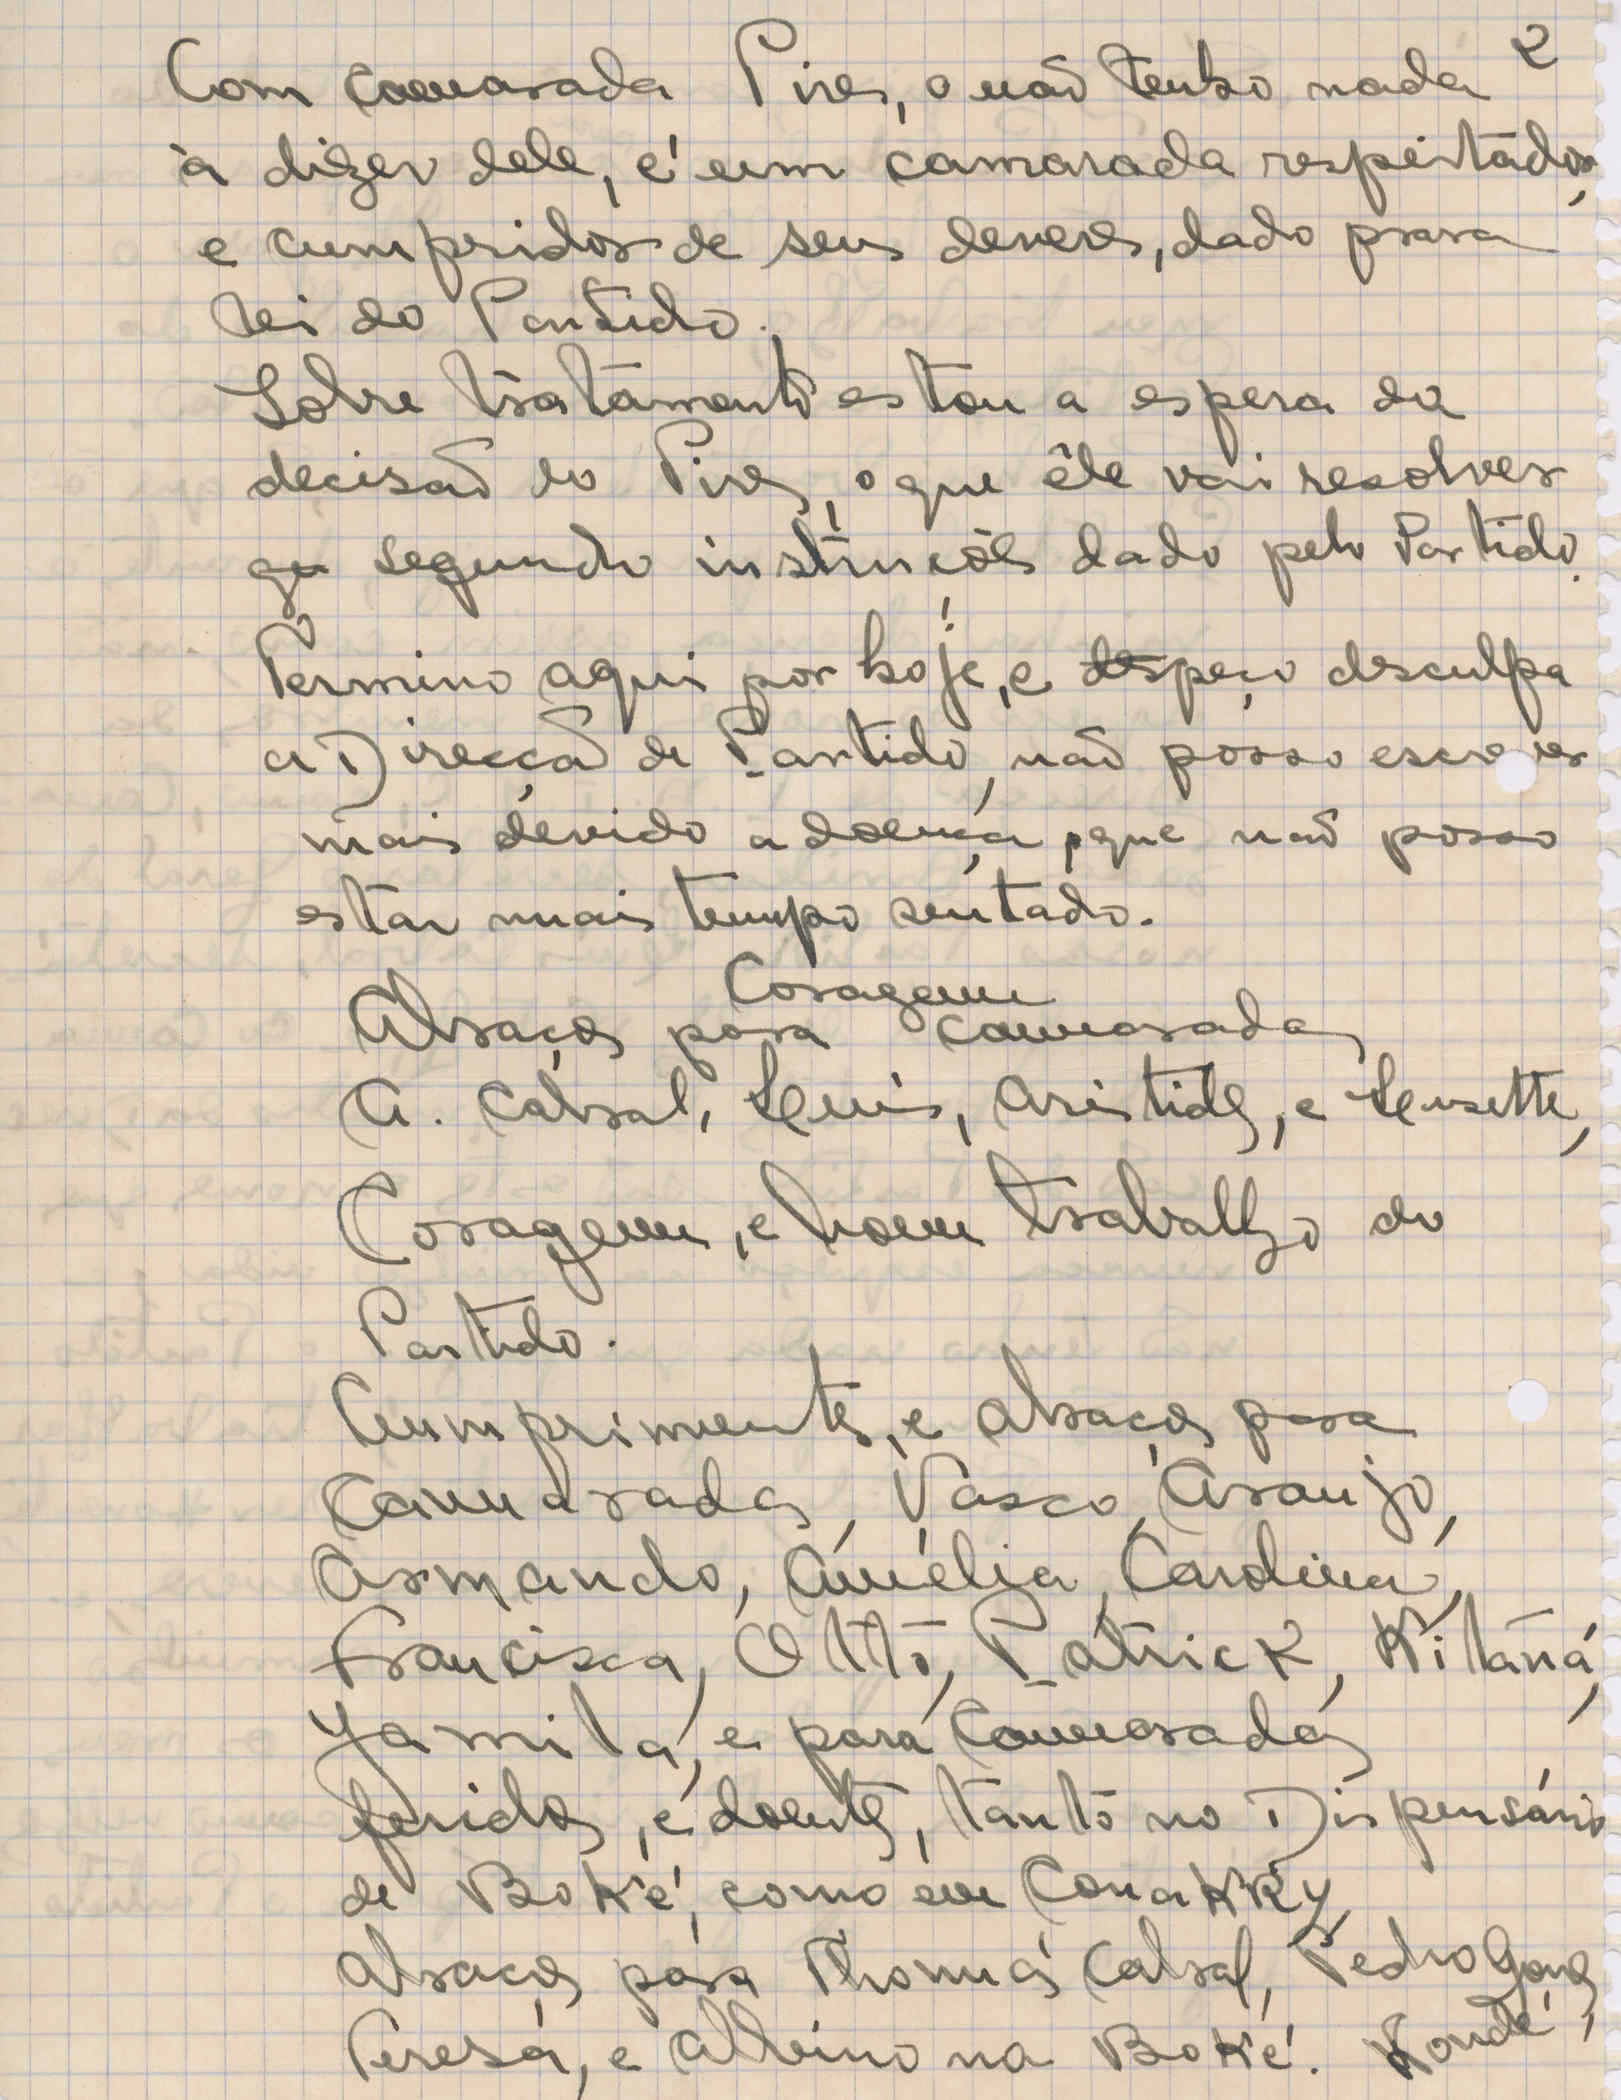 2
Com camarada Pires, o não tenho nada
à dizer dele, é um camarada respeitador,
e cumpridor de seus deveres, dado para
lei do Partido.
Sobre tratamento estou a espera da
decisão do Pires, o que êle vai resolver
segundo instruções dado pelo Partido.
Termino aqui por hoje, e despeço desculpa
a Direcção de Partido, não posso escrever
mais devido a doença, que não posso
estar mais tempo sentado.
Coragem
Abraços para camaradas
A. Cabral, Luis, Aristides, e Lusette,
Coragem, e bom trabalho do
Partido.
Cumprimentos, e abraços para
Camaradas, Vasco, Araujo,
Armando, Amélia, Carolina,
Francisca, Otto, Patrick, Kitáná,
Yamila, e para Camaradas
feridos, e doentes, tanto no Dispensário
de Boké, como em Conakry,
abraços para Thomás Cabral, Pedro Gomes,
Teresa, e Albino na Boké. Kondé,